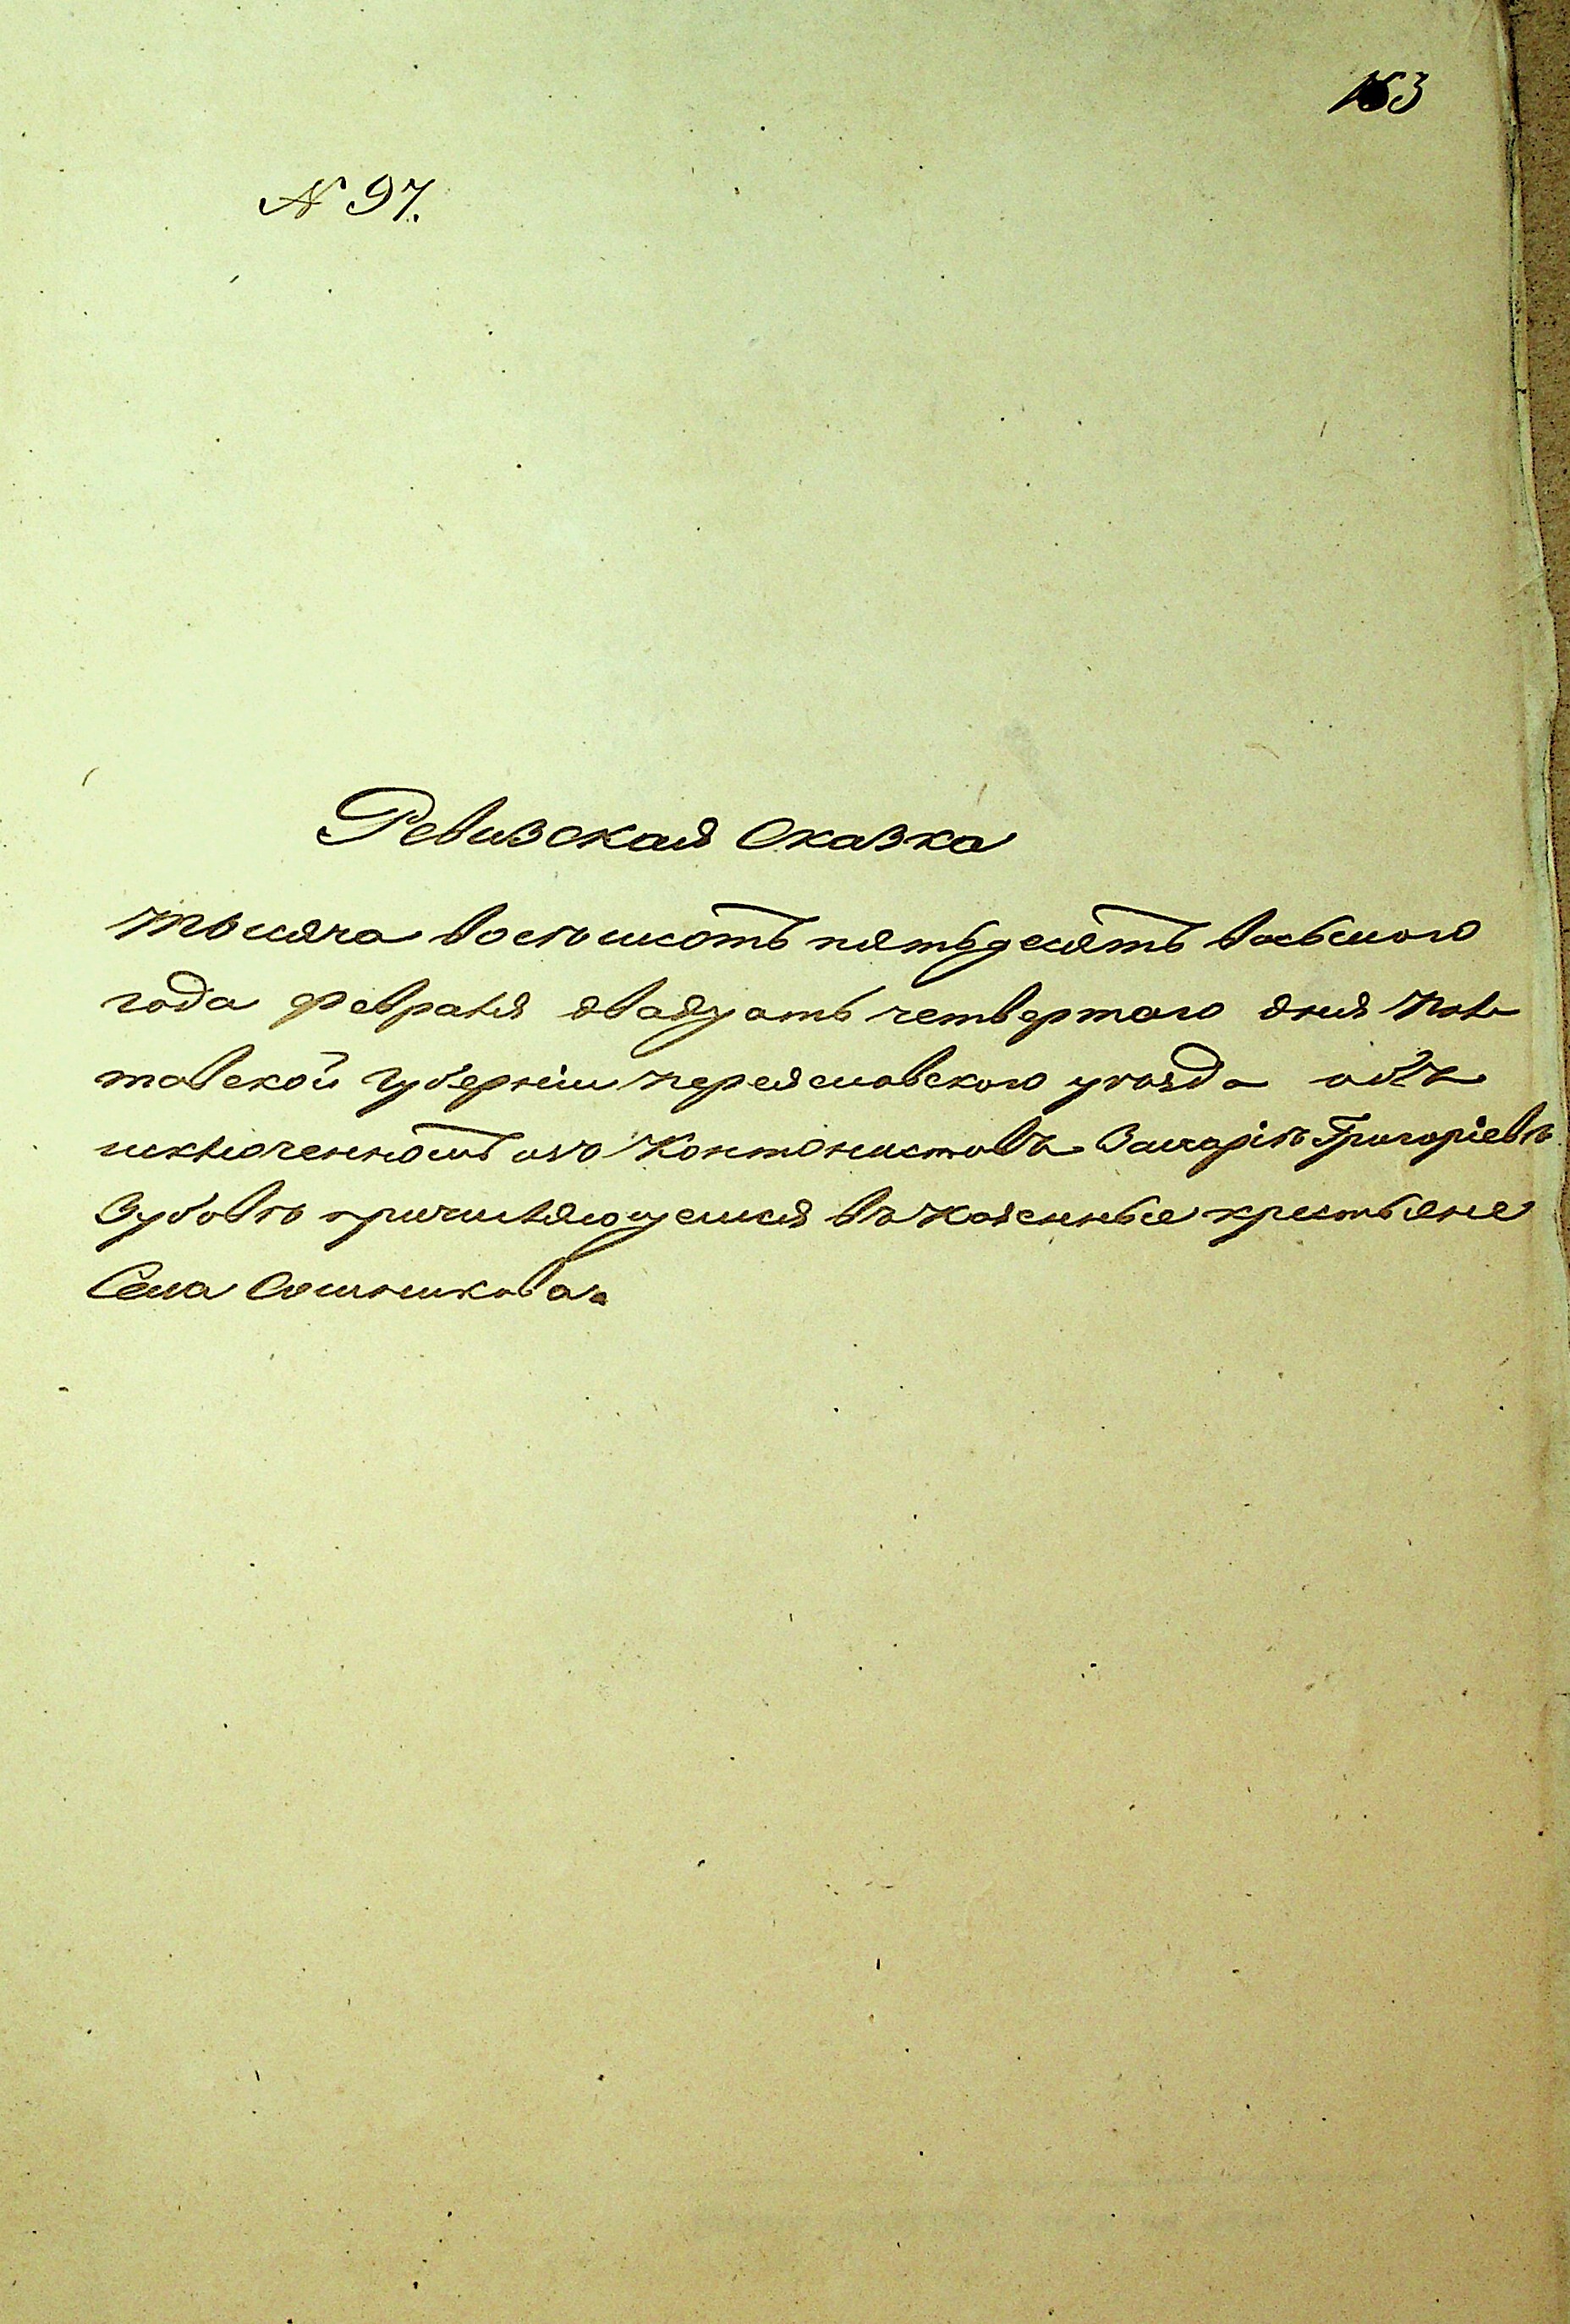 163
№ 97.
Ревизская Сказка
тысяча восемьсотъ пятьдесятъ восьмого
года февраля двадцать четвертого дня Пол
тавской губерніи переяславского уѣзда объ
исключенномъ изъ Кантонистовъ Захаріѣ Григоріевѣ
Зубовѣ причисляющемся въ казенные крестьяне
Села Сошникова.